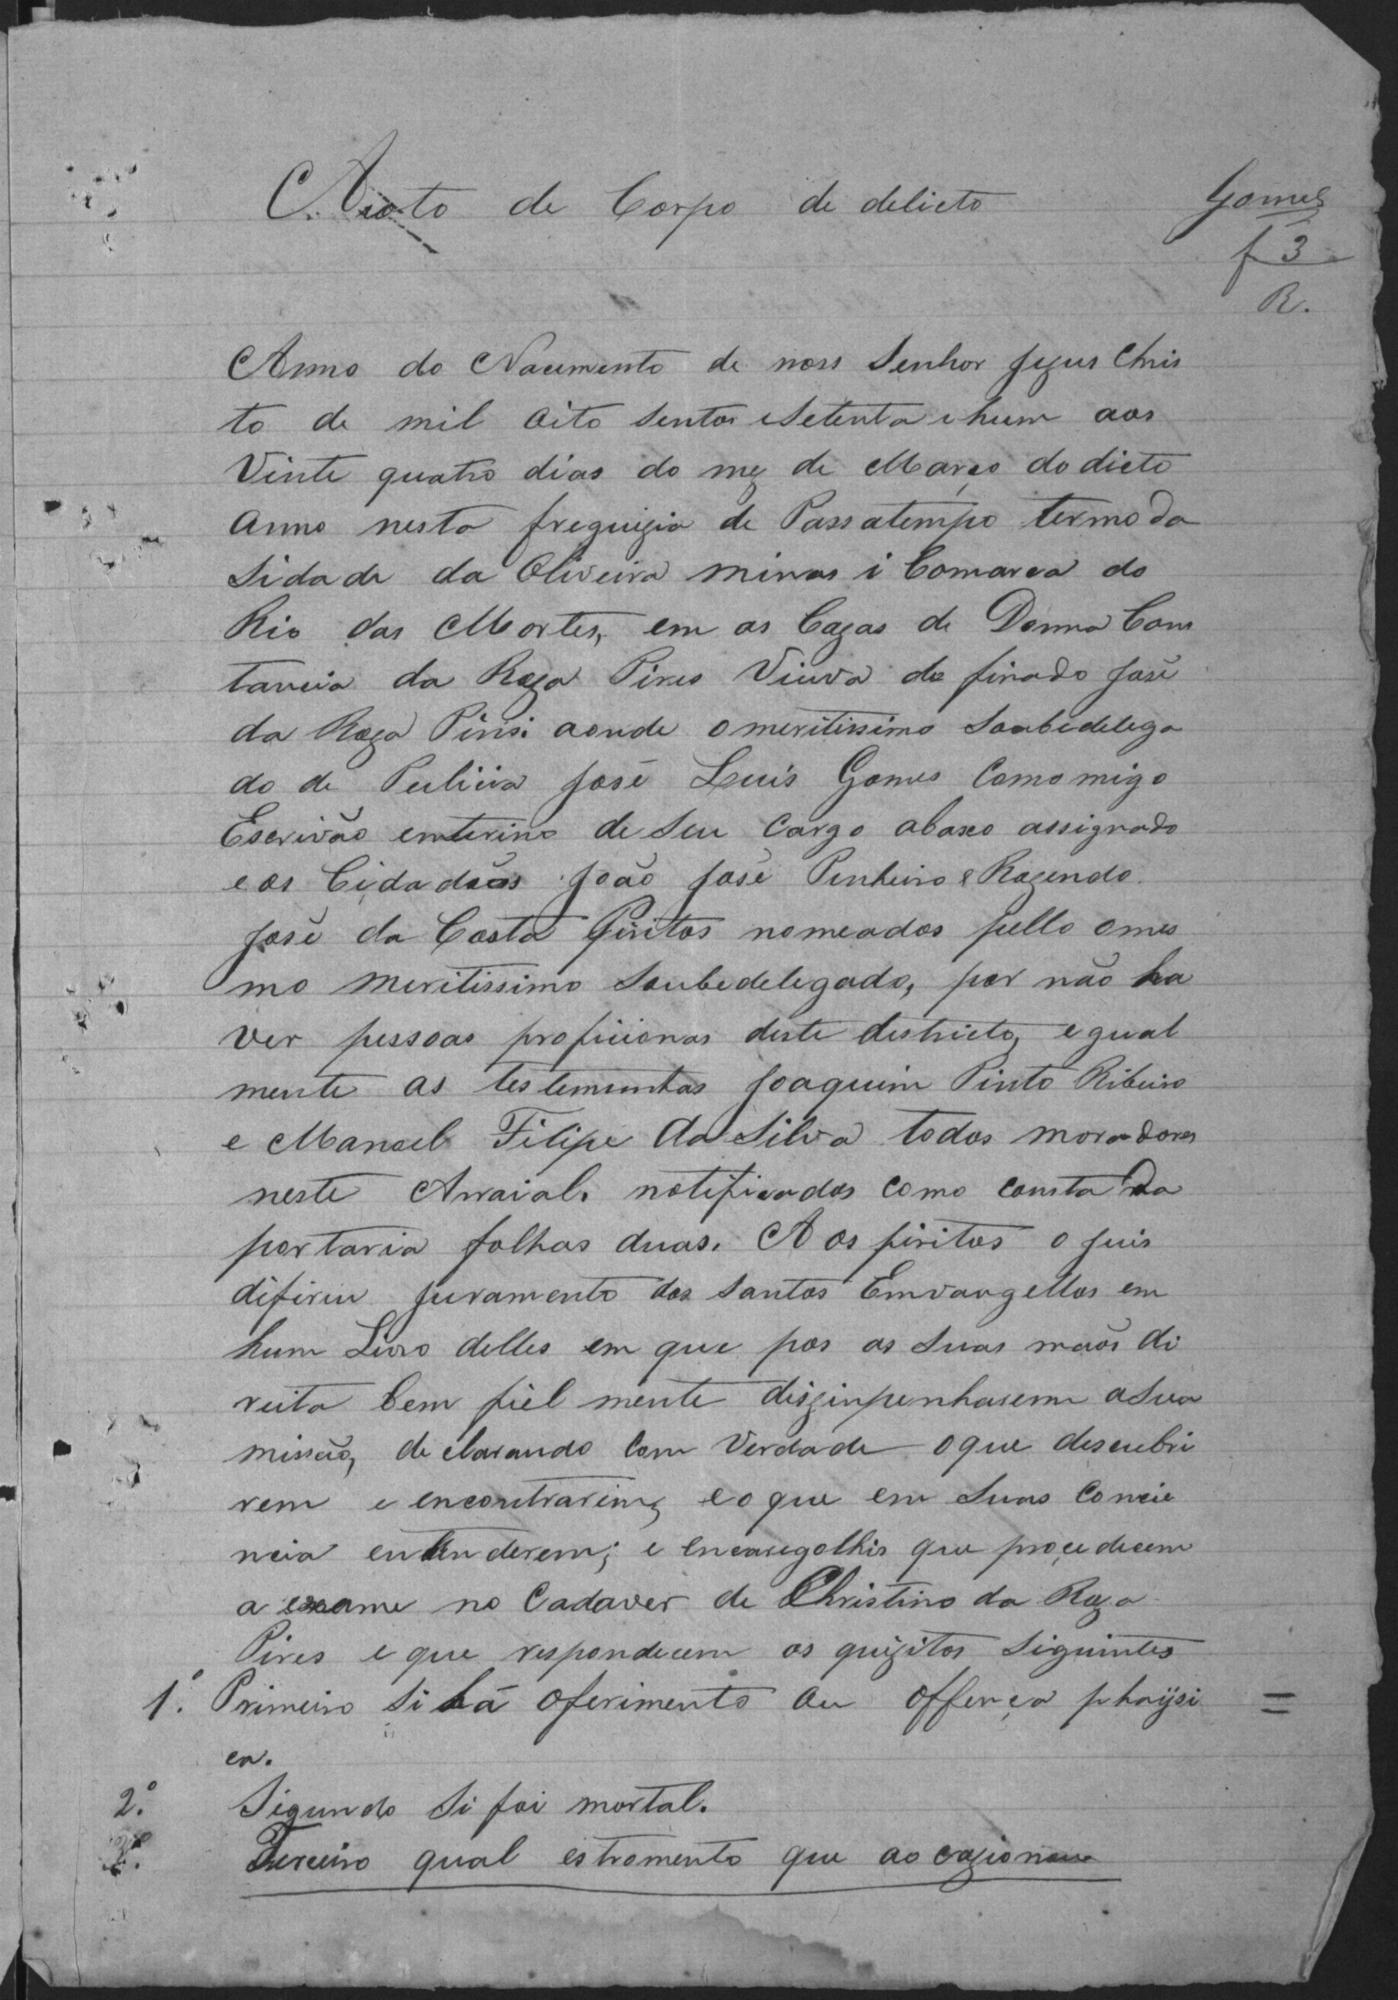 Auto de Corpo de delicto
Gomes
f 3
R.
Anno do Nacimento de noss Senhor Jezus Chris
to de mil oito sentos esetenta ehum aos
Vinte quatro dias do mez de Março do dicto
anno nesta freguizia de Passatempo termo da
Sidade da Oliveira minas i Comarca do
Rio das Mortes, em as Cazas de Donna Cons
tancia da Roza Pires Viuva do finado José
da Roza Piris. aonde omeritissimo Soubedelega
do de Pulicia José Luis Gomes Comomigo
Escrivão emterino de Seu Cargo abaxo assignado
e os Cidadãos João José Penheiro e Rozendo
José da Costa Piritos nomeados pello omes
mo meritissimo Soubedelegado, por não ha
ver pessoas proficionas deste destricto, egual
mente as testemunhas Joaquim Pinto Ribeiro
e Manoel Filipe da Silva todos moradores
neste Arraial. notificados como consta da
portaria folhas duas. A os piritos o juis
difiriu juramento dos Santos Emvangellos em
hum Livro delles em que pos as Suas mãos di
reita bem fiel mente disjinpenharem aSua
missão, de clarando Com Verdade oque descubri
rem e encontrarem, eoque em Suas Concie
ncia entenderem; e encaregolhis que procedecem
a exame no Cadaver de Christino da Roza
Pires e que respondecem os quizitos Siguintes
1.º Primeiro Si há oferimento ou offença phaysi =
ca.
2.º Sigundo Si foi mortal.
Terceiro qual estromento que ao cazionou